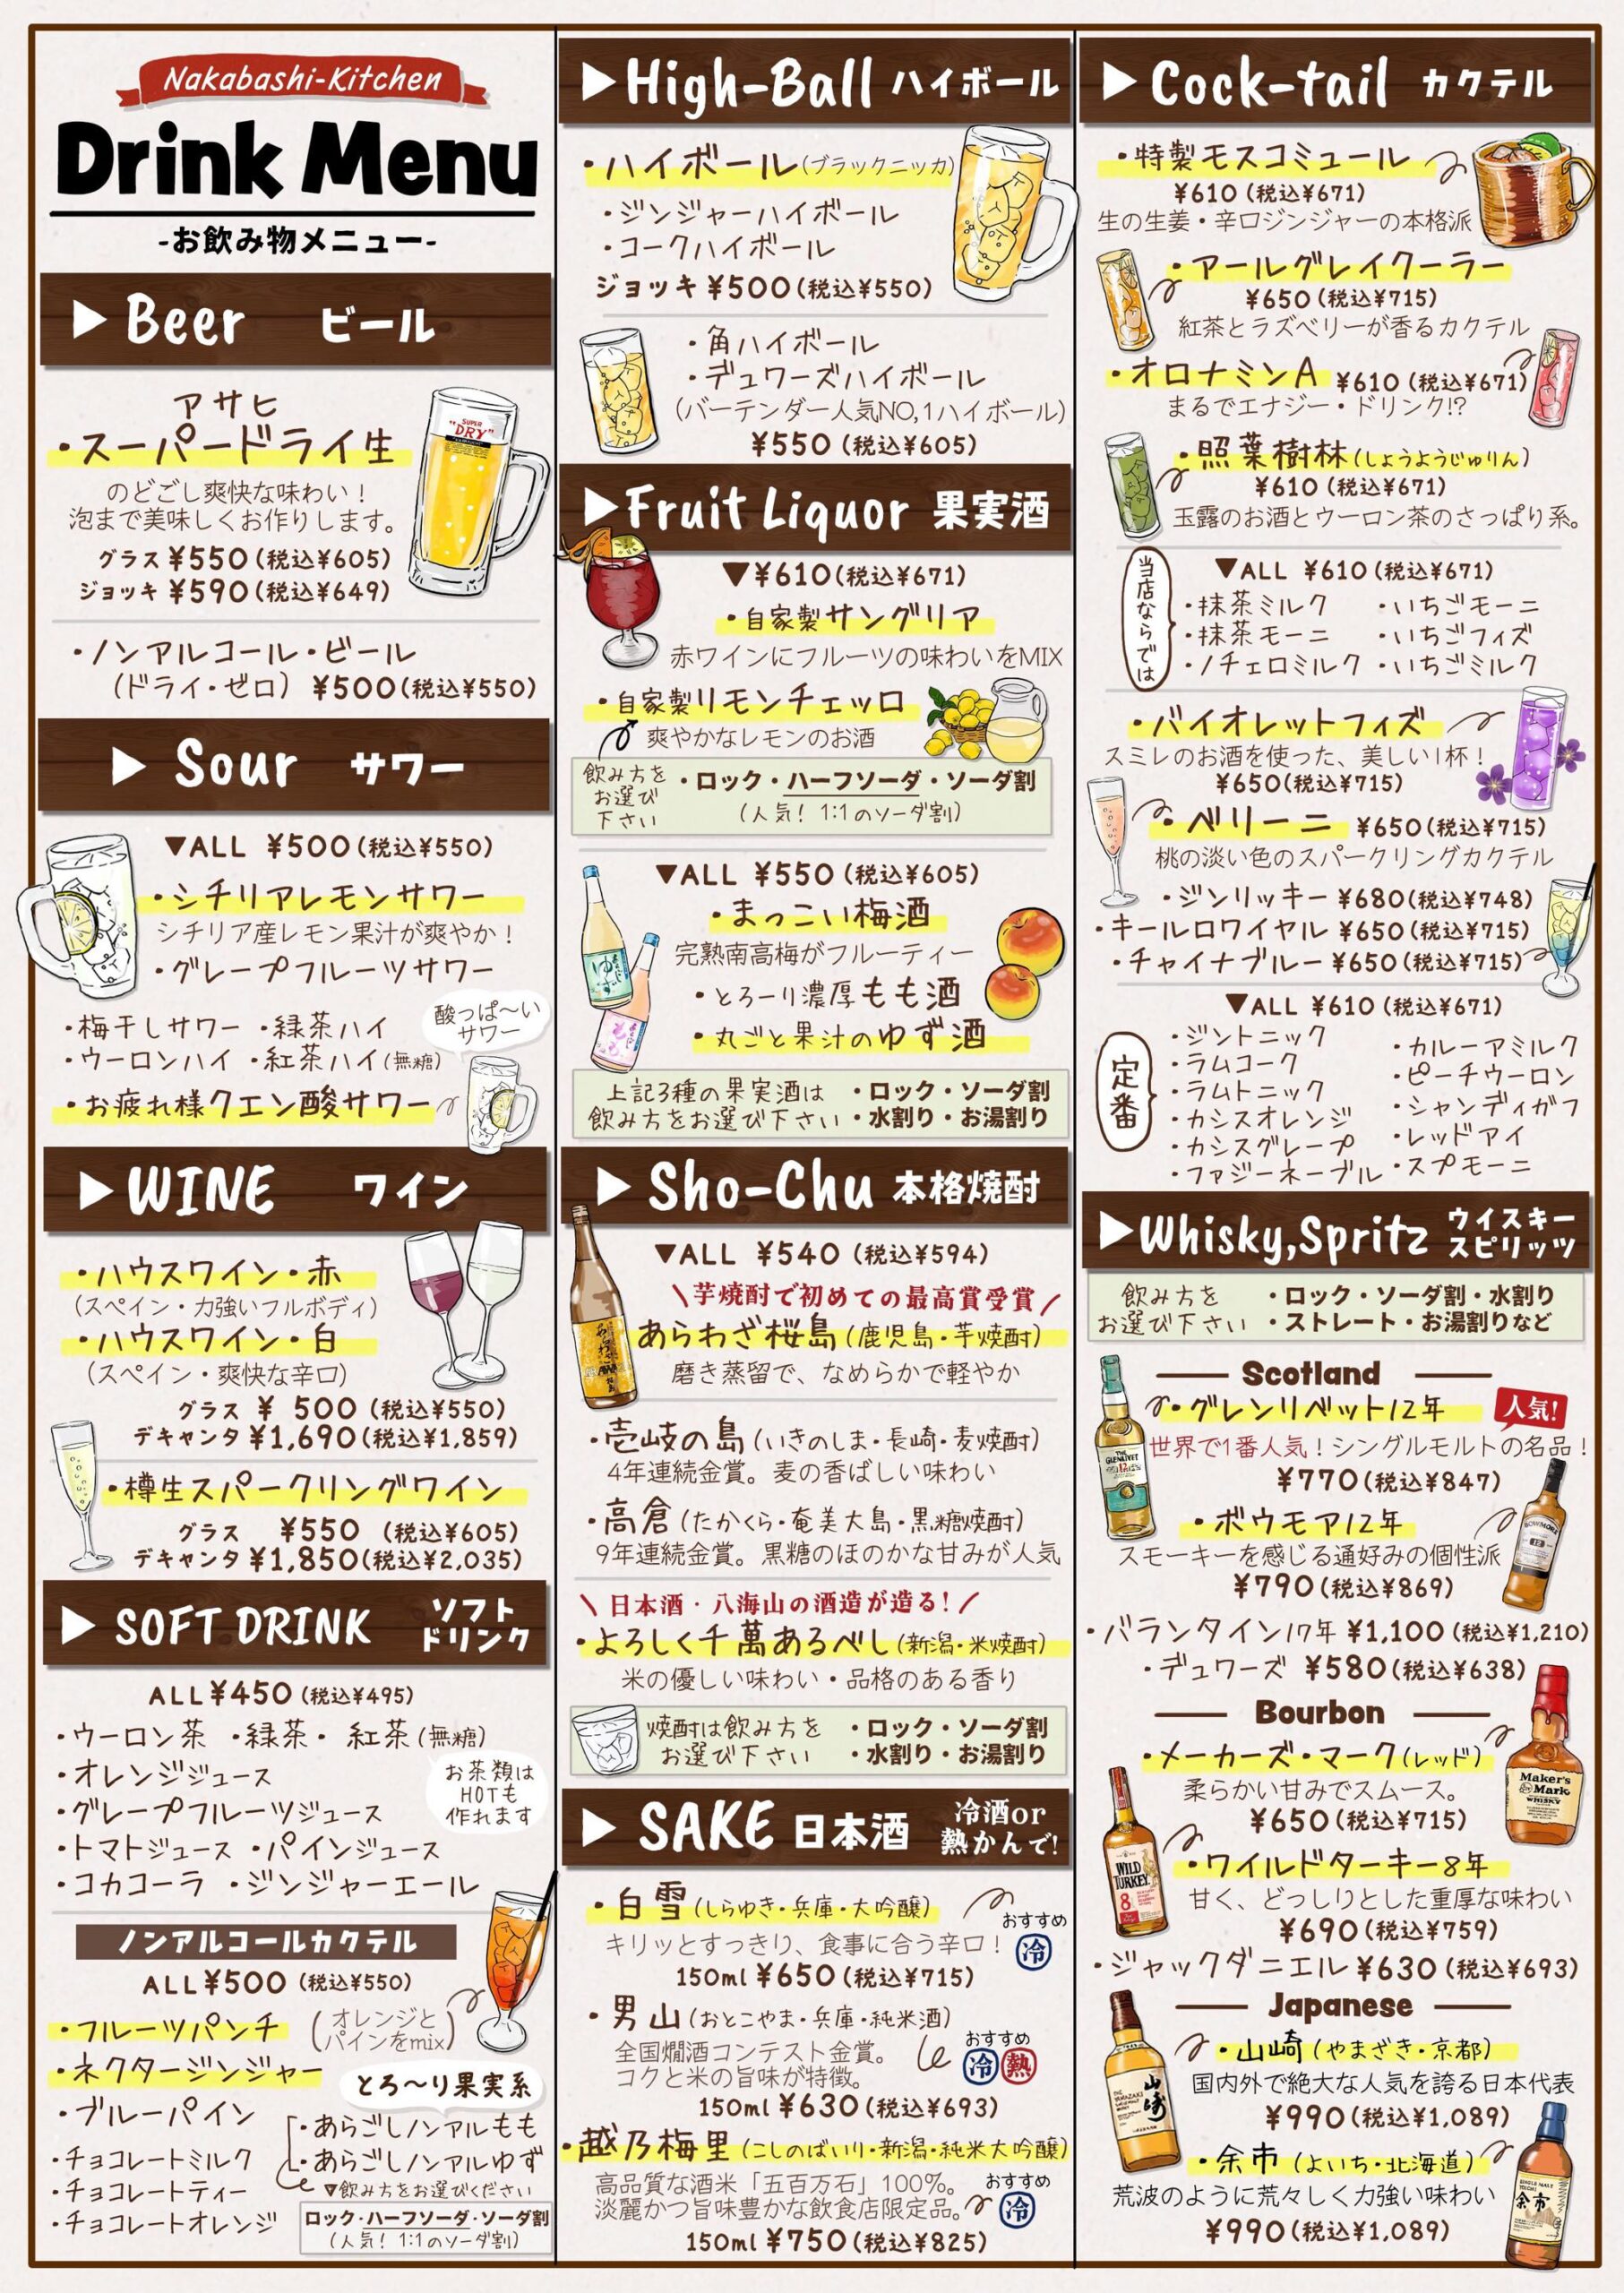 Nakabashi-Kitchen
Drink Menu
-お飲み物メニュー-
▶Beer ビール
アサヒ
・スーパードライ生
のどごし爽快な味わい！
泡まで美味しくお作りします。
グラス ¥550(税込¥605)
ジョッキ ¥590(税込¥649)
SUPER
"DRY"
・ノンアルコール・ビール
(ドライ・ゼロ) ¥500(税込¥550)
▶Sour サワー
▼ALL ¥500(税込¥550)
・シチリアレモンサワー
シチリア産レモン果汁が爽やか！
・グレープフルーツサワー
・梅干しサワー ・緑茶ハイ
・ウーロンハイ ・紅茶ハイ(無糖)
酸っぱ〜い
サワー
・お疲れ様クエン酸サワー
▶WINE ワイン
・ハウスワイン・赤
(スペイン・力強いフルボディ)
・ハウスワイン・白
(スペイン・爽快な辛口)
グラス ¥ 500 (税込¥550)
デキャンタ ¥1,690(税込¥1,859)
・樽生スパークリングワイン
グラス ¥550 (税込¥605)
デキャンタ ¥1,850(税込¥2,035)
▶SOFT DRINK ソフト
ドリンク
ALL¥450(税込¥495)
・ウーロン茶 ・緑茶・ 紅茶(無糖)
・オレンジジュース
・グレープフルーツジュース
お茶類は
HOTも
作れます
・トマトジュース ・パインジュース
・コカコーラ ・ジンジャーエール
ノンアルコールカクテル
ALL¥500 (税込¥550)
・フルーツパンチ (オレンジと
パインをmix)
・ネクタージンジャー
・ブルーパイン
・チョコレートミルク
・チョコレートティー
・チョコレートオレンジ
とろ〜り果実系
・あらごしノンアルもも
・あらごしノンアルゆず
▼飲み方をお選びください
ロック・ハーフソーダ・ソーダ割
(人気! 1:1のソーダ割)
▶High-Ball ハイボール
・ハイボール(ブラックニッカ)
・ジンジャーハイボール
・コークハイボール
ジョッキ ¥500(税込¥550)
・角ハイボール
・デュワーズハイボール
(バーテンダー人気NO,1ハイボール)
¥550 (税込¥605)
▶Fruit Liquor 果実酒
▼¥610(税込¥671)
・自家製サングリア
赤ワインにフルーツの味わいをMIX
・自家製リモンチェッロ
爽やかなレモンのお酒
飲み方を
お選び
下さい
・ロック・ハーフソーダ・ソーダ割
(人気! 1:1のソーダ割)
▼ALL ¥550 (税込¥605)
・まっこい梅酒
完熟南高梅がフルーティー
・とろーり濃厚もも酒
・丸ごと果汁のゆず酒
上記3種の果実酒は ・ロック・ソーダ割
飲み方をお選び下さい ・水割り・お湯割り
▶Sho-Chu 本格焼酎
▼ALL ¥540 (税込¥594)
＼芋焼酎で初めての最高賞受賞／
あらわざ桜島(鹿児島・芋焼酎)
磨き蒸留で、なめらかで軽やか
・壱岐の島(いきのしま・長崎・麦焼酎)
4年連続金賞。麦の香ばしい味わい
・高倉(たかくら・奄美大島・黒糖焼酎)
9年連続金賞。黒糖のほのかな甘みが人気
＼日本酒・八海山の酒造が造る!／
・よろしく千萬あるべし(新潟・米焼酎)
米の優しい味わい・品格のある香り
焼酎は飲み方を ・ロック・ソーダ割
お選び下さい ・水割り・お湯割り
▶SAKE 日本酒 冷酒or
熱かんで!
・白雪(しらゆき・兵庫・大吟醸)
おすすめ
冷
キリッとすっきり、食事に合う辛口！
150ml ¥650(税込¥715)
・男山(おとこやま・兵庫・純米酒)
おすすめ
冷 熱
全国燗酒コンテスト金賞。
コクと米の旨味が特徴。
150ml ¥630(税込¥693)
・越乃梅里(こしのばいり・新潟・純米大吟醸)
高品質な酒米「五百万石」100%。
淡麗かつ旨味豊かな飲食店限定品。
おすすめ
冷
150ml ¥750(税込¥825)
▶Cock-tail カクテル
・特製モスコミュール
¥610(税込¥671)
生の生姜・辛口ジンジャーの本格派
・アールグレイクーラー
¥650(税込¥715)
紅茶とラズベリーが香るカクテル
・オロナミンA ¥610(税込¥671)
まるでエナジー・ドリンク!?
・照葉樹林(しょうようじゅりん)
¥610(税込¥671)
玉露のお酒とウーロン茶のさっぱり系。
当店ならでは
▼ALL ¥610(税込¥671)
・抹茶ミルク ・いちごモーニ
・抹茶モーニ ・いちごフィズ
・ノチェロミルク ・いちごミルク
・バイオレットフィズ
スミレのお酒を使った、美しい1杯！
¥650(税込¥715)
・ベリーニ ¥650(税込¥715)
桃の淡い色のスパークリングカクテル
・ジンリッキー ¥680(税込¥748)
・キールロワイヤル ¥650(税込¥715)
・チャイナブルー ¥650(税込¥715)
▼ALL ¥610(税込¥671)
定番
・ジントニック ・カルーアミルク
・ラムコーク ・ピーチウーロン
・ラムトニック ・シャンディガフ
・カシスオレンジ ・レッドアイ
・カシスグレープ ・スプモーニ
・ファジーネーブル
▶Whisky,Spritz ウイスキー
スピリッツ
飲み方を ・ロック・ソーダ割・水割り
お選び下さい ・ストレート・お湯割りなど
Scotland
・グレンリベット12年 人気!
世界で1番人気！シングルモルトの名品！
¥770(税込¥847)
・ボウモア12年
スモーキーを感じる通好みの個性派
¥790(税込¥869)
・バランタイン17年 ¥1,100(税込¥1,210)
・デュワーズ ¥580(税込¥638)
Bourbon
・メーカーズ・マーク(レッド)
柔らかい甘みでスムース。
¥650(税込¥715)
Maker's
Mark
WHISKY
・ワイルドターキー8年
甘く、どっしりとした重厚な味わい
¥690(税込¥759)
WILD
TURKEY
8
・ジャックダニエル ¥630(税込¥693)
Japanese
・山崎(やまざき・京都)
国内外で絶大な人気を誇る日本代表
¥990(税込¥1,089)
山崎
・余市(よいち・北海道)
荒波のように荒々しく力強い味わい
¥990(税込¥1,089)
余市